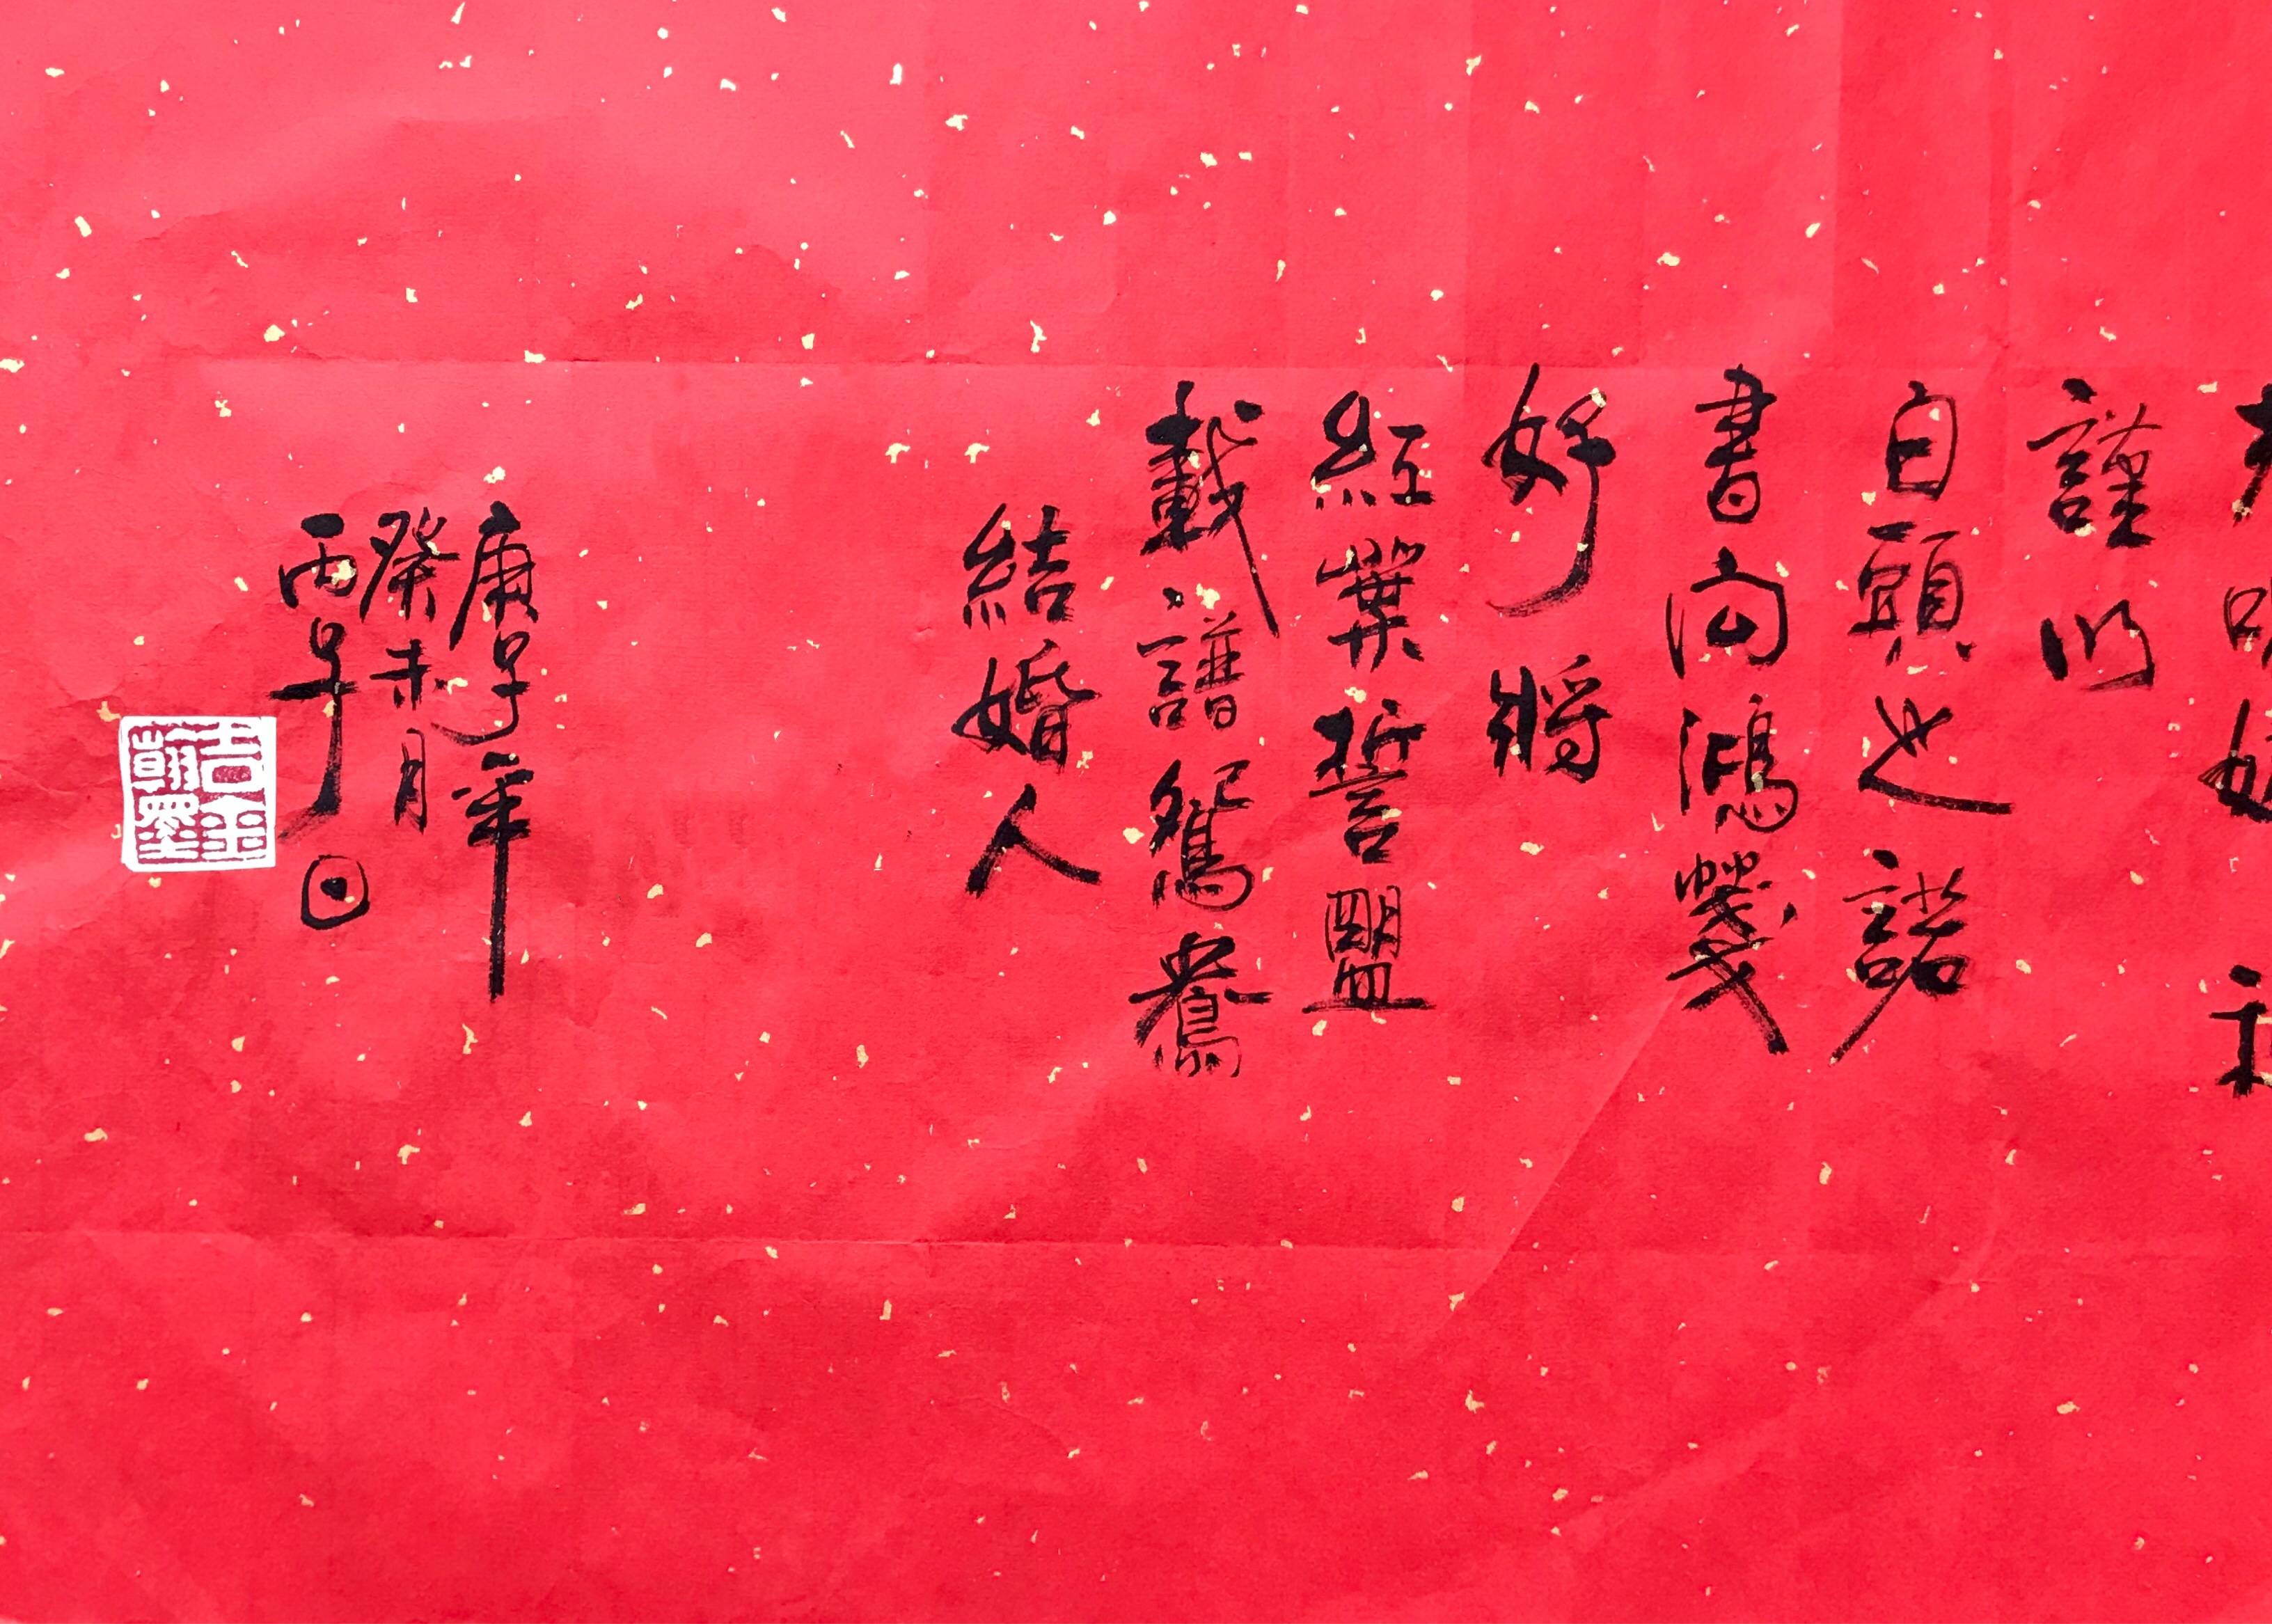 謹以
白頭之諾
書向鴻箋
好將
紅葉誓盟
載譜鴛鴦
結婚人
庚子年
癸未月
丙子日
吉金
翰墨